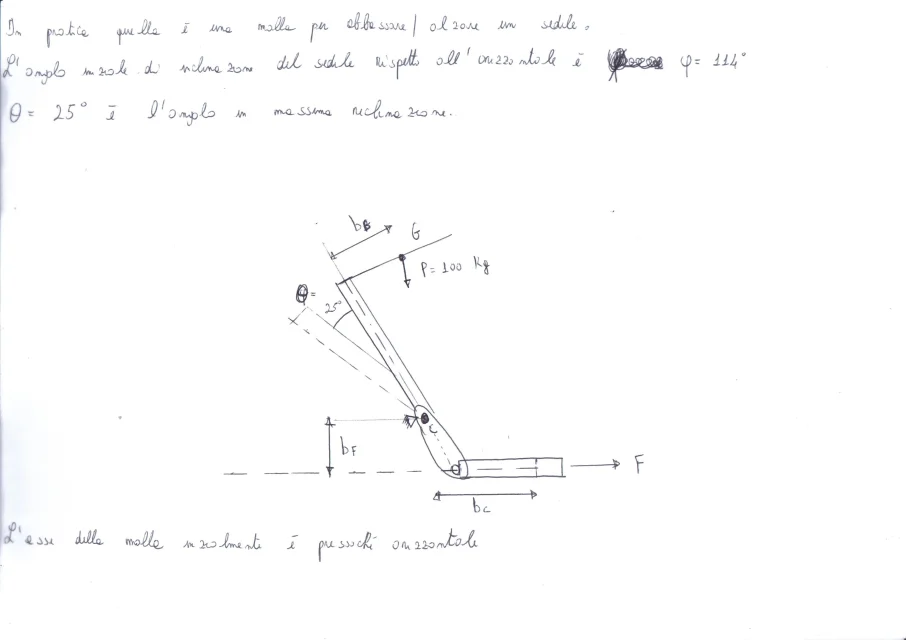 In pratica quella è una molla per abbassare/alzare un sedile.
L'angolo iniziale di inclinazione del sedile rispetto all'orizzontale è φ= 114°
θ= 25° è l'angolo in massima reclinazione.
bB
G
P= 100 Kg
θ=
25°
C
bF
F
bC
L'asse della molla inizialmente è pressoché orizzontale